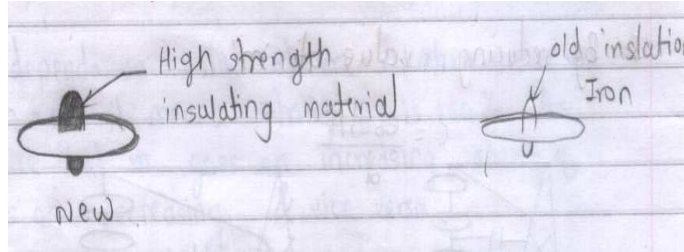 High strength
insulating material
New
old inslatio
Iron